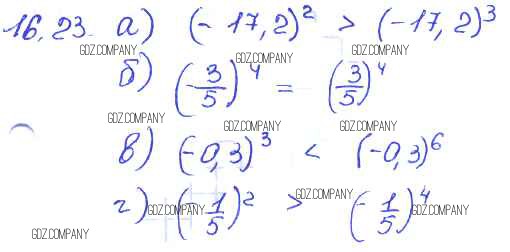 16.23. а) (-17,2)² > (-17,2)³
GDZ.COMPANY GDZ.COMPANY GDZ.COMPANY
б) (-3/5)⁴ = (3/5)⁴
GDZ.COMPANY GDZ.COMPANY GDZ.COMPANY
в) (-0,3)³ < (-0,3)⁶
г) (-1/5)² > (-1/5)⁴
GDZ.COMPANY GDZ.COMPANY GDZ.COMPANY
GDZ.COMPANY